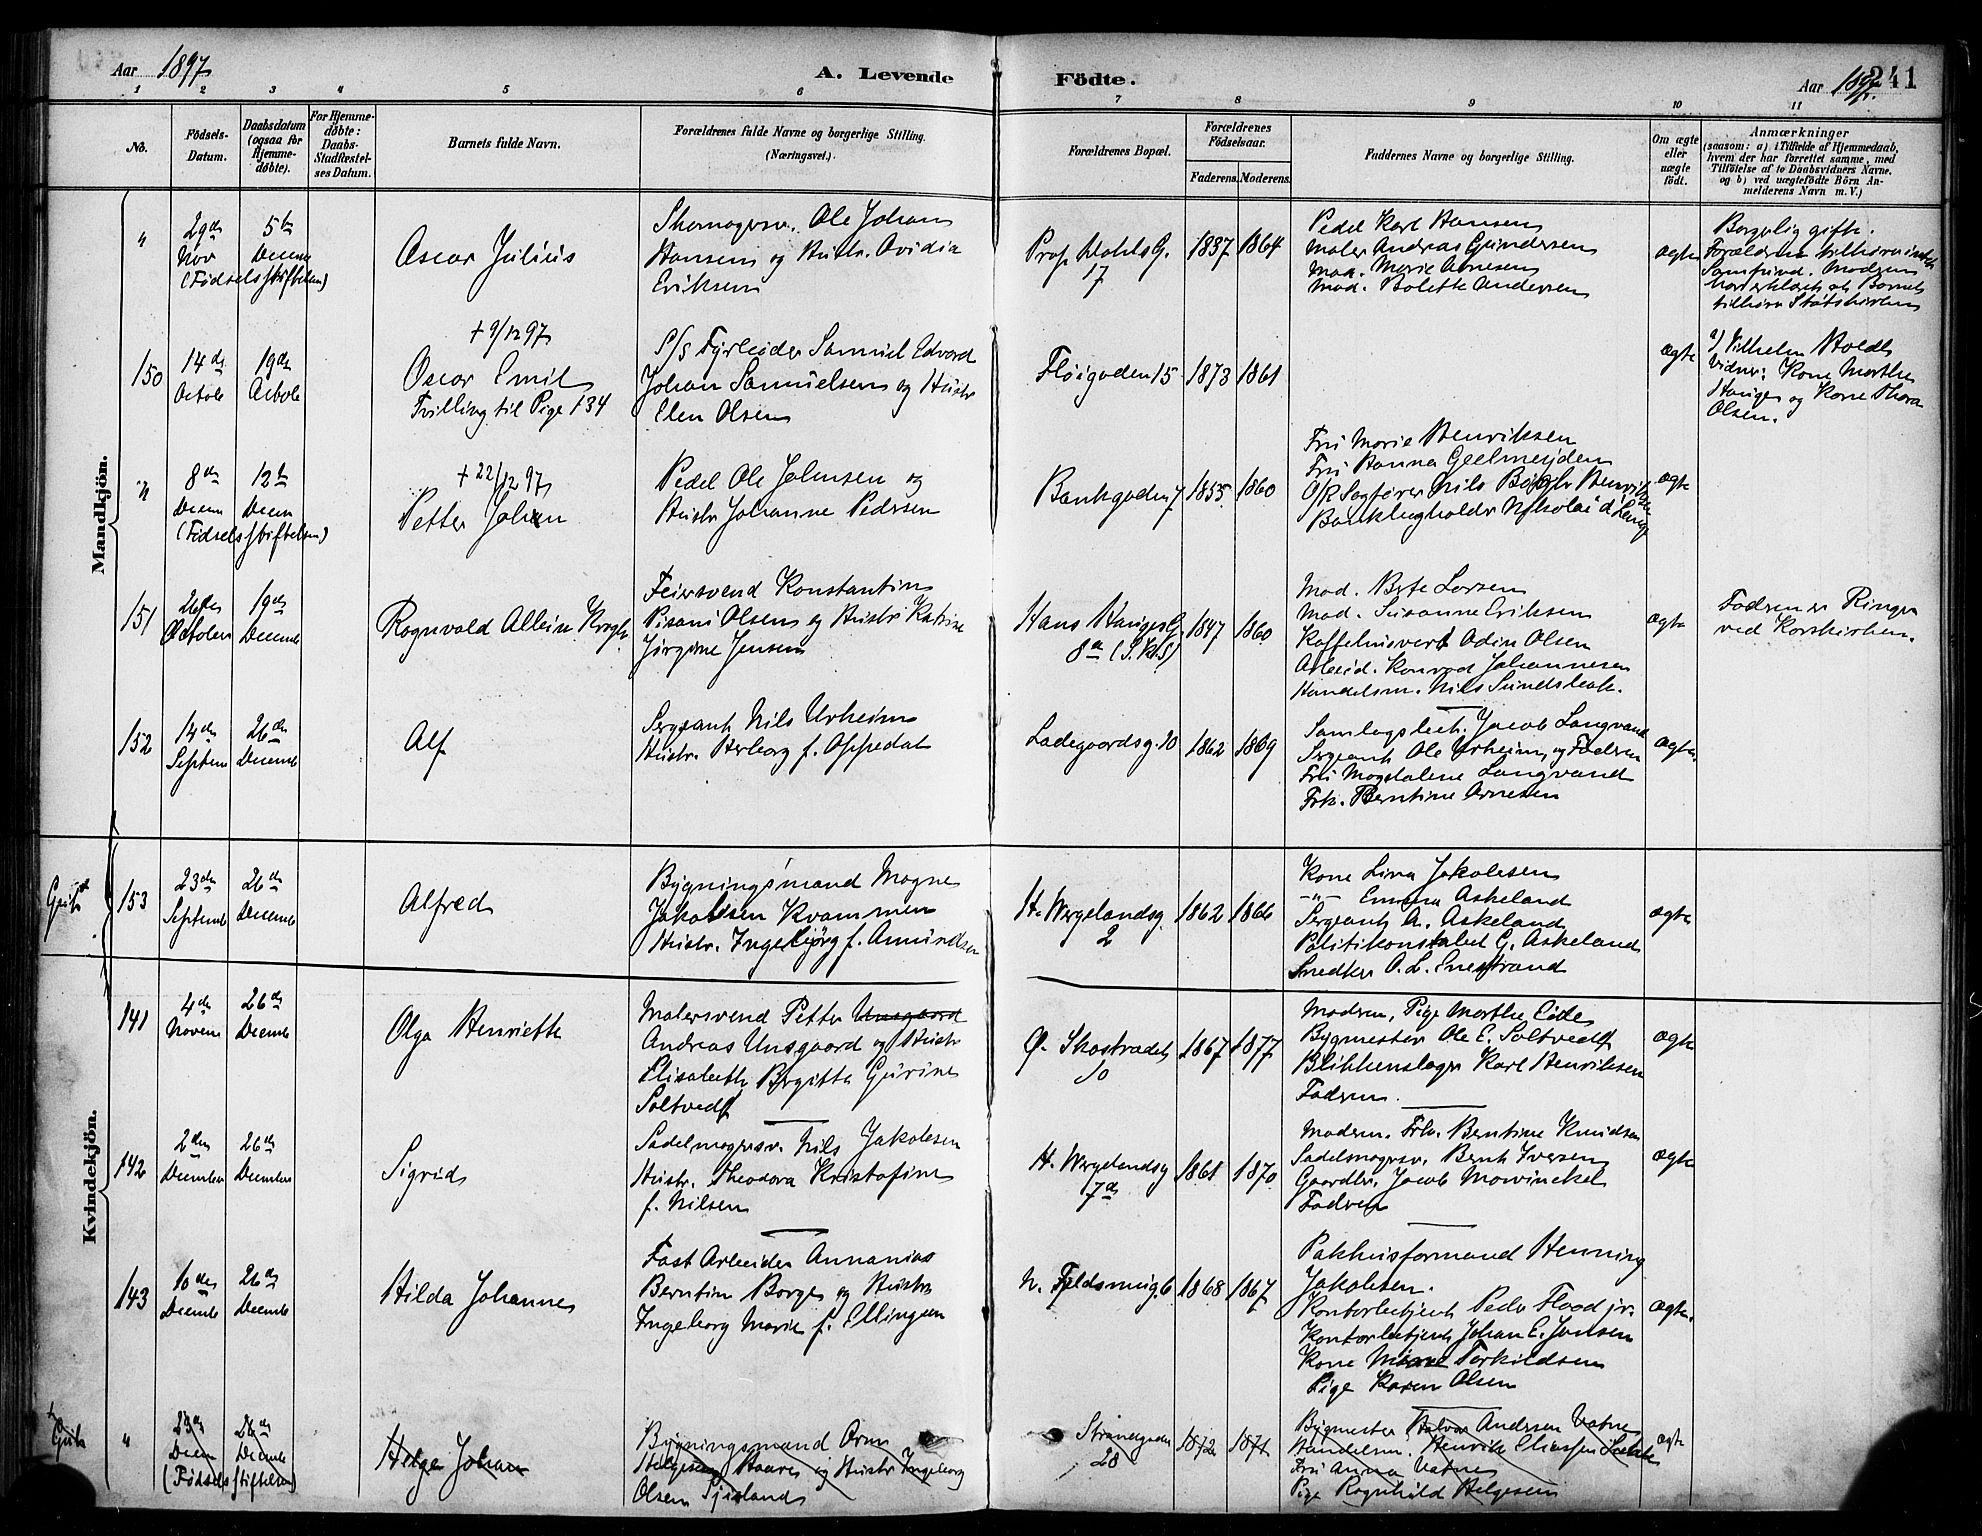 Aar 1897
A. Levende
Födte.
Aar 1897.
241
1 2 3 4 5 6 7 8 9 10 11
No.
Födsels-
Datum.
Daabsdatum
(ogsaa for
Hjemme-
døbte).
For Hjemme-
døbte:
Daabs-
Stadfæstel-
ses Datum.
Barnets fulde Navn.
Forældrenes fulde Navne og borgerlige Stilling.
(Næringsvei.)
Forældrenes Bopæl.
Forældrenes
Födselsaar.
Faderens. Moderens.
Faddernes Navne og borgerlige Stilling.
Om ægte
eller
uægte
födt.
Anmærkninger
(saasom: a) i Tilfælde af Hjemmedaab,
hvem der har forrettet samme, med
Tilföielse af to Daabsvidners Navne,
og b) ved uægtefödte Börn An-
melderens Navn m. V.)
Mandkjön.
"
29de
Nov
5te
Decem
(Fødselsstiftelsen)
Oscar Julius
Skomagersv. Ole Johan
Hansen og Hustr. Ovidia
Eriksen
Prof. Dahls G.
17
1837 1864
Pedel Karl Hansen
Maler Andreas Gundersen
Mad. Marie Arnesen
Mad. Bolette Andersen
ægte
Borgelig gifte.
Forældrene tilhøre intet
Samfund. Moderen
har erklæret at Barnet
tilhøre Statskirken
150
14de
Octobe
19de
Octobe
+ 9/12 97
Oscar Emil
Tvilling til Pige 134
S/S Fyrbøder Samuel Edvard
Johan Samuelsen og Hustr
Elen Olsen
Fløigaden 15
1873 1861
ægte
a/ Vilhelm Holdt
Vidner: Kone Marthe
Hauge og Kone Thora
Olsen.
"
8de
Decem
12te
Decem
(Fødselsstiftelsen)
+ 22/12 97
Petter Johan
Pedel Ole Johnsen og
Hustr Johanne Pedersen
Bankgaden 7.
1855 1860
Fru Marie Henriksen
Fru Hanna Geelmeyden
O/R Sagfører Nils Bøgh Henriksen
Bankbogholder Nikolai d Lange
ægte
151
26de
October
19de
Decembe
Rognvald Allein Krogh
Feiersvend Konstantin
Pisani Olsen og Hustr Katrine
Jørgine Jensen
Hans Hauges G.
8a (S. Kl. G)
1847 1860
Mad. Berte Larsen
Mad. Susanne Eriksen
Kaffehusvert Odin Olsen
Arbeid. Konrad Johannesen
Handelsm. Nils Sundsbak.
ægte
Faderen er Ringer
ved Korskirken.
152
14de
Septem
26de
Decembe
Alf
Sergeant Nils Urheim
Hustr. Herborg f. Oppedal
Ladegaardsg. 20
1862 1869
Samlagsbest. Jacob Langvand
Sergeant Ole Urheim og Faderen
Fru Magdalene Langvand
Frk. Berntine Arnesen
ægte.
153
23de
Septembe
26de
Decembe
Alfred
Bygningsmand Magne
Jakobsen Kvammen
Hustr. Ingebjørg f. Amundsen
H. Wergelandsg.
2
1862 1866
Kone Lina Jakobsen
-"- Emma Askeland
Sergeant A. Askeland
Politikonstabel G. Askeland
Snedker O. L. Enestrand
ægte
Kvindekjön.
141
4de
Novem
26de
Decembe
Olga Henriette
Malersvend Petter Unsgaard
Andreas Unsgaard og Hustr
Elisabeth Birgitte Gurine
Soltvedt
Ø. Skostrædet
10
1867 1877
Moderen, Pige Marthe Eide
Bygmester Ole E. Soltvedt
Blikkenslager Karl Henriksen
Faderen.
ægte
142
2den
December
26de
December
Sigrid
Sadelmagersv. Nils Jakobsen
Hustr. Theodora Kristofine
f. Nilsen
H. Wergelandsg
7de
1868 1870
Moderen. Frk. Berntine Knudsen
Sadelmagersv. Bernt Iversen
Gaardbr. Jacob Mowinckel
Faderen
ægte
143
10de
Decembe
26de
Decembe
Hilda Johanne
Fast Arbeider Annanias
Berntin Borge og Hustr
Ingeborg Marie f. Ellingsen
N. Fjeldsmug. 6
1868 1867
Pakhusformand Henning
Jakobsen.
Kontorbetjent Peder Flood jr.
Kontorbetjent Johan E. Jansen
Kone Marie Torkildsen
Pige Karen Olsen
ægte.
Gut
"
23de
Decem
26de
Decembe
(Fødselsstiftelsen)
Helge Johan
Bygningsmand Orm
Helgesen Haave og Hustr Ingeborg
Olsen
Strandgaden
28
1872 1871
Bygmester Halvor Andersen Vatne
Handelsm. Henrik Eliassen
Fru Anna Vatne
Pige Ragnhild Helgesen
ægte